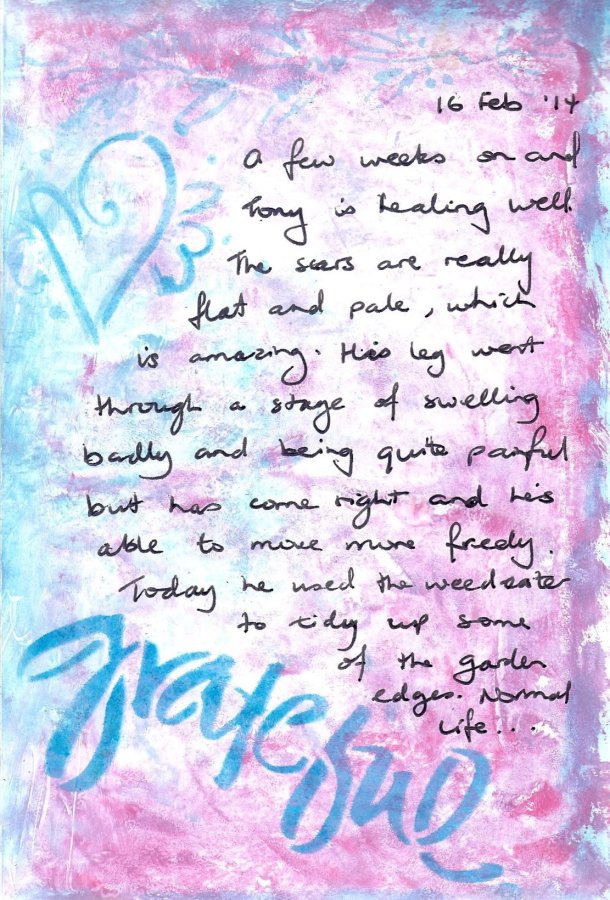 16 Feb '14
A few weeks on and
Tony is healing well.
The scars are really
flat and pale, which
is amazing. His leg went
through a stage of swelling
badly and being quite painful
but has come right and he's
able to move more freely.
Today he used the weedeater
to tidy up some
of the garden
edges. Normal
life...
grateful